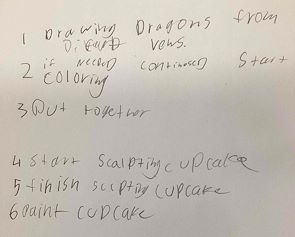 1 Drawing Dragons from
Difert vews.
2 if Needed continused Start
coloring
3 Put together
4 Start Scalpting cupcake
5 finish sculpting cupcake
6 paint cupcake